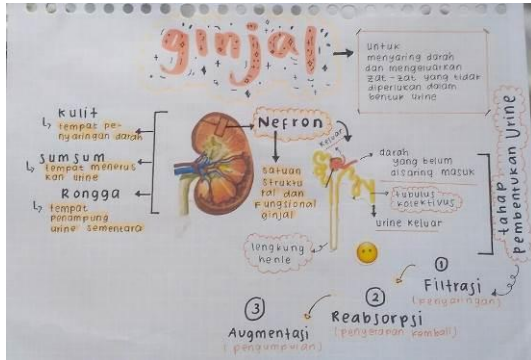 ginjal
untuk
menyaring darah
dan mengeluarkan
zat-zat yang tidak
diperlukan dalam
bentuk urine
Kulit
tempat pe-
nyaringan darah
sumsum
tempat menerus
kan urine
Rongga
tempat
penampung
urine sementara
Nefron
satuan
struktu
ral dan
Fungsional
ginjal
keluar
darah
yang belum
disaring masuk
tubulus
kolektivus
urine keluar
lengkung
henle
tahap
pembentukan Urine
1
Filtrasi
(penyaringan)
2
Reabsorpsi
(penyerapan kembali)
3
Augmentasi
(pengumpulan)